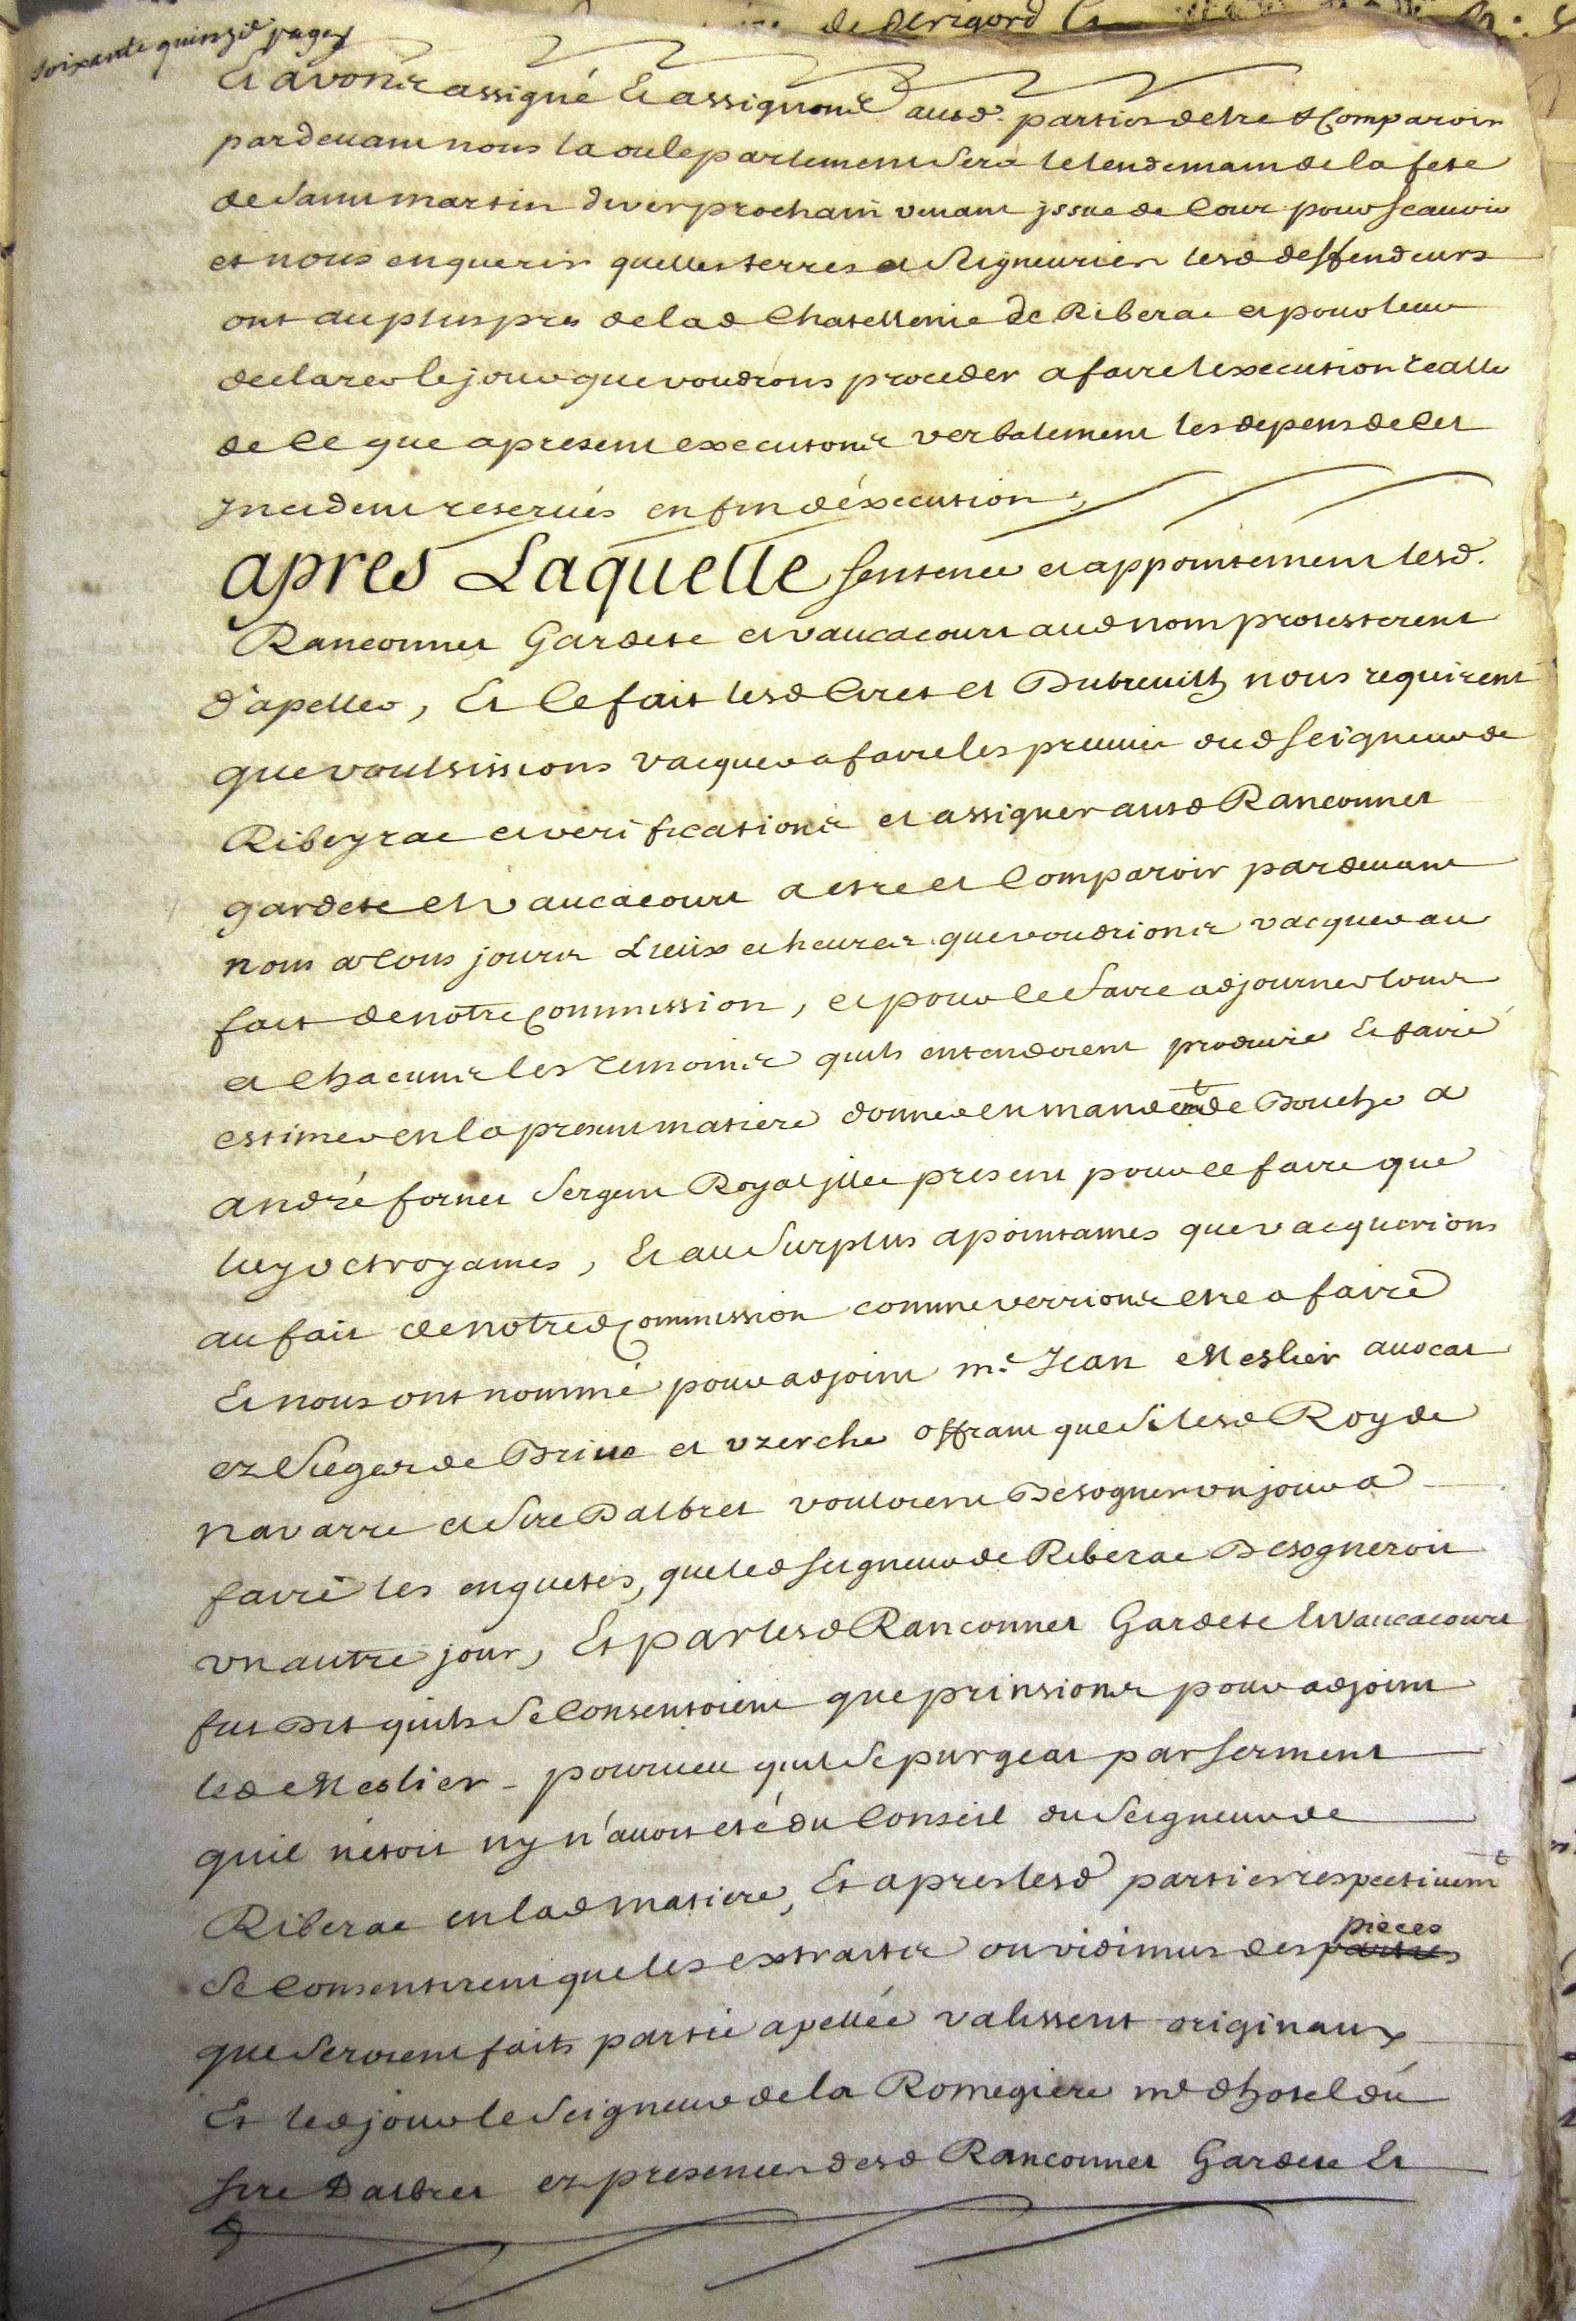 de Perigord
soixante quinzie pages
Et avons assigné Et assignons ausd. parties de tre & Comparoir
pardevant nous la ou le parlement sera le lendemain de la fete
de saint martin diver prochain venant jssue de Cour pour scavoir
et nous enquerir quelles terres et seigneuries lesd deffendeurs
ont au plus pres de lad Chatellenie de Riberac et pour leur
declarer le jour que voudrons proceder a faire lexecution realle
de Ce que a present executons verbalement les depens de Cet
Jncident reservés en fin déxecution,
apres Laquelle sentence et appointement lesd.
Ranconnet Gardete et vaucacourt aud nom protesterent
d'apeller, Et Ce fait lesd Cires et Dubreuilh nous requirent
que voulsissions vacquer a faire les preuves dud seigneur de
Ribeyrac et verifications et assigner ausd Ranconnet
gardete et vaucacourt a estre et Comparoir pardevant
nous a tous jours Lieux et heures que voudrions vacquer au
fait de notre Commission, et pour Ce faire adjourner tous
et Chacuns les Temoins quils entendoient produire Et faire
estimer en la present matiere donner en mandemt de Bouche a
andré fornet sergent Royal jllec present pour ce faire que
luy octroyames, Et au surplus apointames que vacquerions
au fait de notred Commission comme verrions etre a faire
Et nous ont nommé pour adjoint me. Jean Meslier avocat
ez sieges de Brive et uzerche offrant que si lesd Roy de
navarre et sire Dalbret vouloient Besogner un jour a
faire les enquetes, que led seigneur de Riberac Besogneroit
un autre jour, Et par lesd Ranconnet Gardete Et vaucacourt
fut Dit quils se Consentoient que prinsions pour adjoint
led Meslier - pourveu quil se purgeat par serment
quil n'etoit ny n'avoit eté du Conseil du seigneur de
Riberac en lad matiere, Et apres lesd parties respectivemt
se Consentirent que les extraits ou vidimus des parties pieces
que seroient faits partie apellée valissent originaux
Et led jour le seigneur de la Romegiere md dhotel dú
sire Dalbret ez presences desd Ranconnet Gardete Et